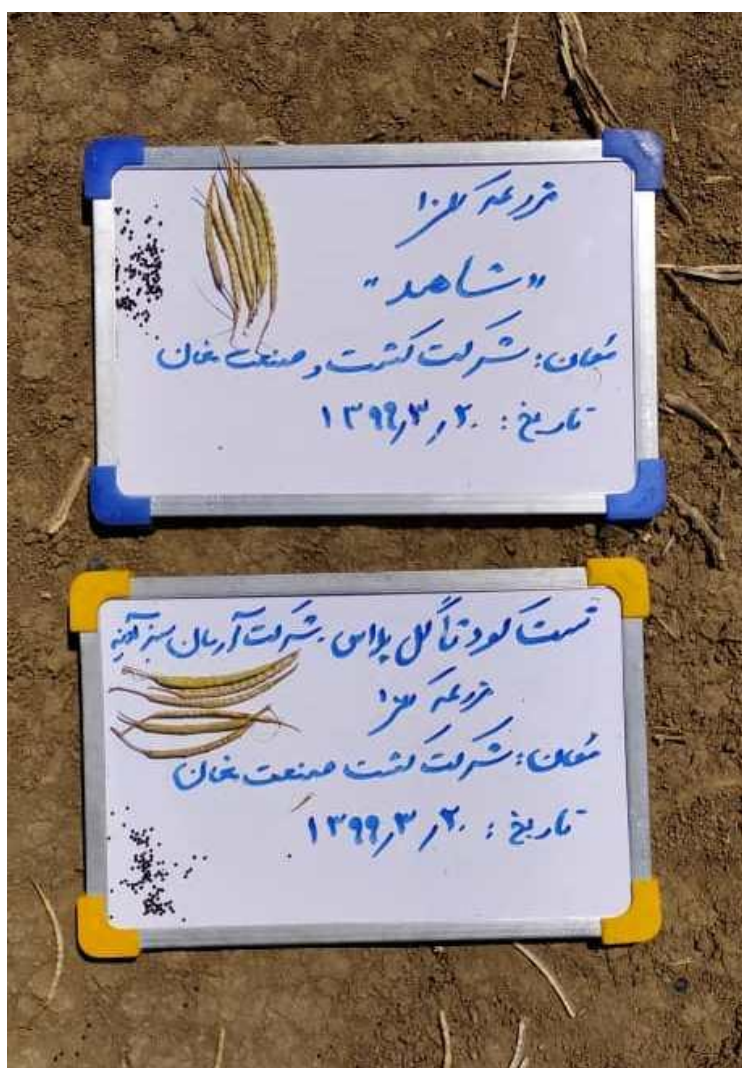 مزرعه کلزا
"شاهد"
مکان: شرکت کشت و صنعت مغان
تاریخ: ۱۳۹۹٫۳٫۲۰
تست کود تاگل پلاس شرکت آرمان سبز آدینه
مزرعه کلزا
مکان: شرکت کشت صنعت مغان
تاریخ: ۱۳۹۹٫۳٫۲۰